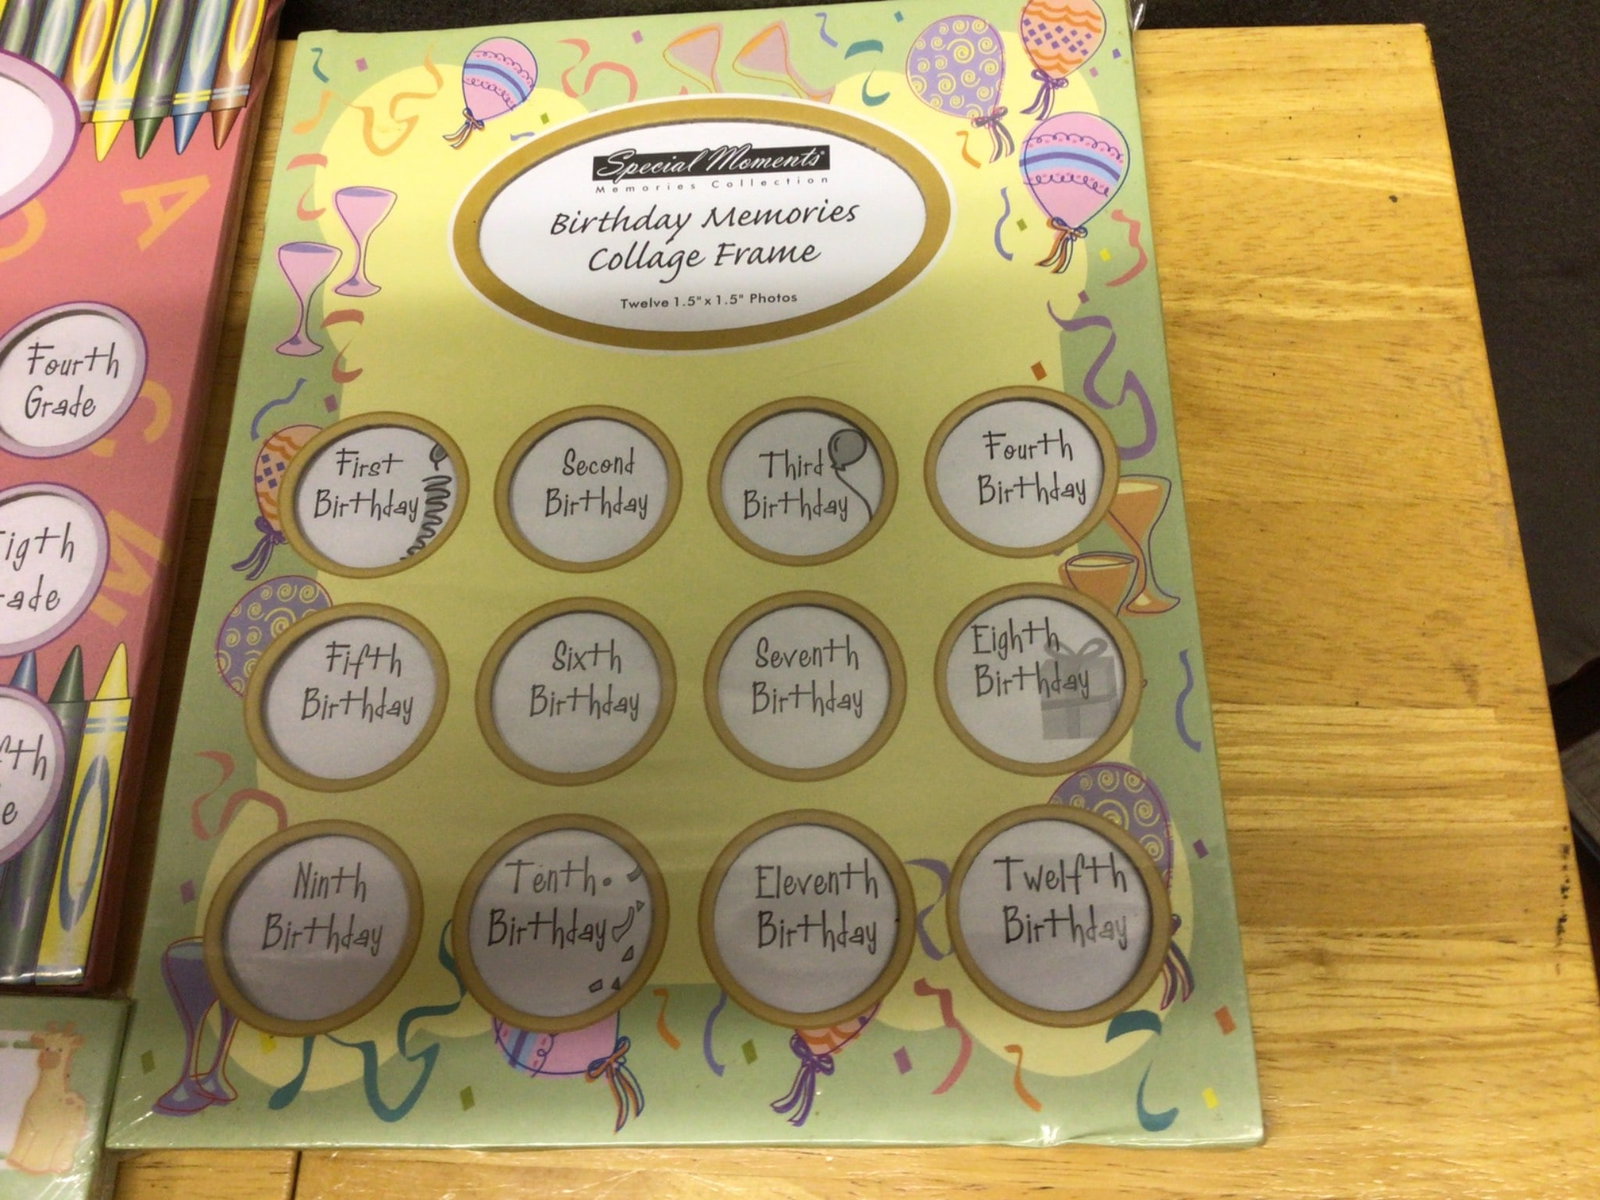 Special Moments
Memories Collection
Birthday Memories
Collage Frame
Twelve 1.5" x 1.5" Photos
First
Birthday
Second
Birthday
Third
Birthday
Fourth
Birthday
Fifth
Birthday
Sixth
Birthday
Seventh
Birthday
Eighth
Birthday
Ninth
Birthday
Tenth
Birthday
Eleventh
Birthday
Twelfth
Birthday
Fourth
Grade